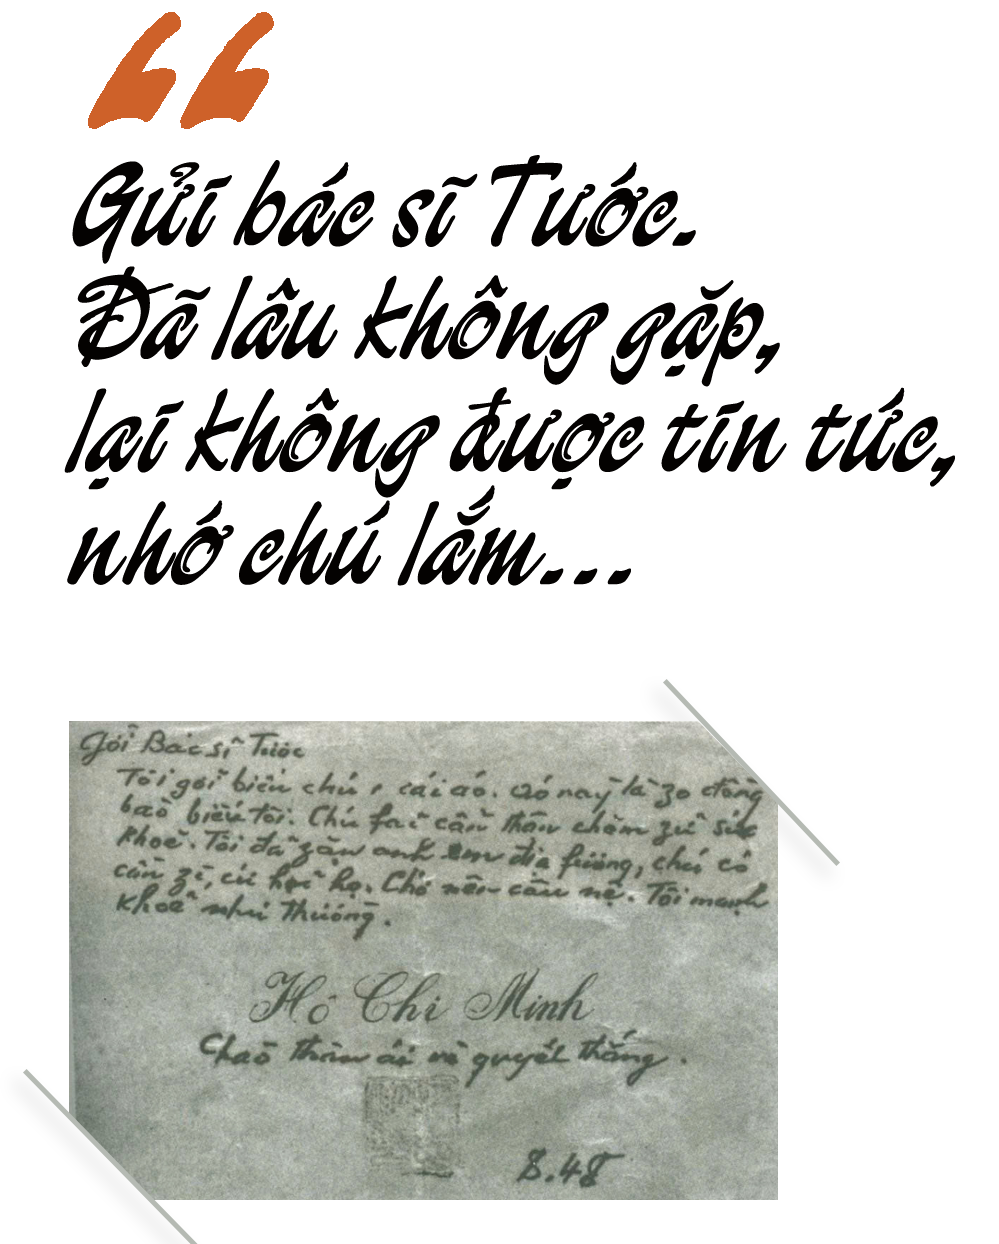 “
Gửi bác sĩ Tước.
Đã lâu không gặp,
lại không được tin tức,
nhớ chú lắm...
Gởi Bác sĩ Tước
Tôi gởi biếu chú 1 cái áo. Áo này là zo đồng
baò biếu tôi. Chú fai cẩn thận chăm zữ sức
khoẻ. Tôi đã zặn anh em địa fương, chú có
cần zì, cứ hỏi họ. Chớ nên câu nệ. Tôi mạnh
khoẻ như thường.
Hồ Chí Minh
Chaò thân ái và quyết thắng.
8.48